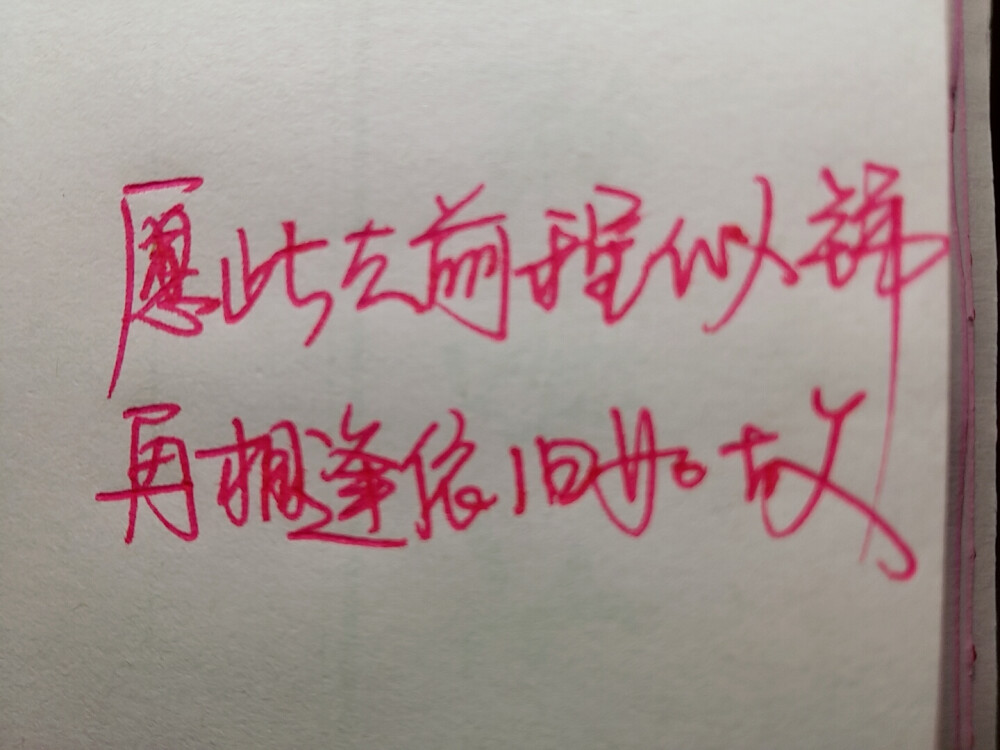 愿此去前程似锦
再相逢依旧如故